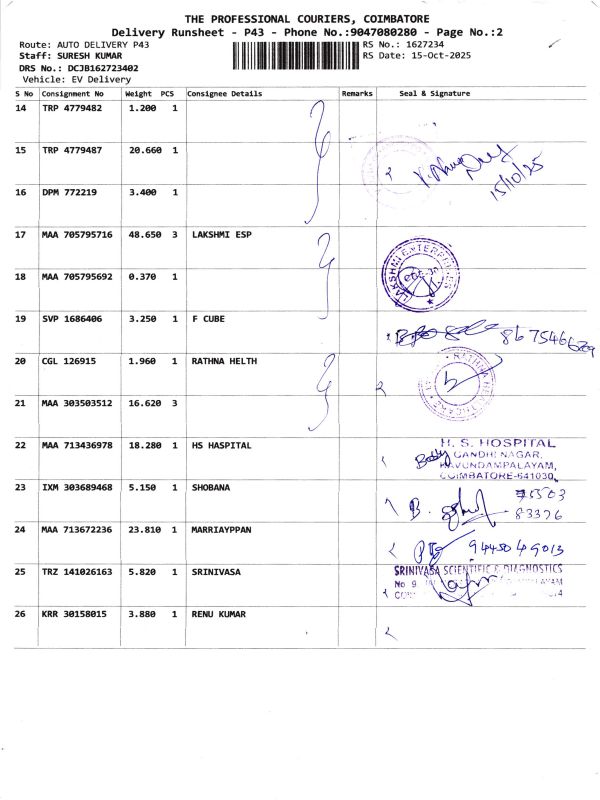 THE PROFESSIONAL COURIERS, COIMBATORE
Delivery Runsheet - P43 - Phone No.:9047080280 - Page No.:2
Route: AUTO DELIVERY P43
RS No.: 1627234
Staff: SURESH KUMAR
RS Date: 15-Oct-2025
DRS No.: DCJB162723402
Vehicle: EV Delivery
S No Consignment No Weight PCS Consignee Details Remarks Seal & Signature
14 TRP 4779482 1.200 1
15 TRP 4779487 20.660 1
15/10/25
16 DPM 772219 3.400 1
17 MAA 705795716 48.650 3 LAKSHMI ESP
LAKSHMI ENTERPRISES
18 MAA 705795692 0.370 1
19 SVP 1686406 3.250 1 F CUBE
20 CGL 126915 1.960 1 RATHNA HELTH
RATHNA HEALTHCARE
21 MAA 303503512 16.620 3
22 MAA 713436978 18.280 1 HS HASPITAL
H. S. HOSPITAL
GANDHI NAGAR,
KAVUNDAMPALAYAM,
COIMBATORE-641030.
23 IXM 303689468 5.150 1 SHOBANA
83376
24 MAA 713672236 23.810 1 MARRIAYPPAN
9445049013
25 TRZ 141026163 5.820 1 SRINIVASA
SRINIVASA SCIENTIFIC & DIAGNOSTICS
No 9
26 KRR 30158015 3.880 1 RENU KUMAR